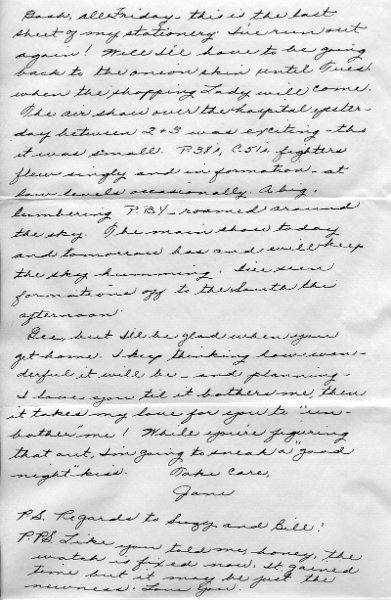 Gosh, all Friday - this is the last
sheet of my stationery I've run out
again! Well I'll have to be going
back to the onion skin until Tues.
when the shopping Lady will come.
The air show over the hospital yester-
day between 2+3 was exciting - tho
it was small. P.38s, C.51s, fighters
flew singly and in formation - at
low levels occasionally. A big,
lumbering P.B.Y - roamed around
the sky. The main show today
and tomorrow has and will keep
the sky humming. I've seen
formations off to the South this
afternoon.
Gee, but I'll be glad when you
get home. I keep thinking how won-
derful it will be - and planning.
I love you til it bothers me, then
it takes my love for you to "un-
bother" me! While you're figuring
that out, I'm going to sneak a "good
night" kiss. Take care,
Jane
P.S. Regards to Suzy and Bill!
P.P.S. Like you told me, honey, the
watch is fixed now. It gained
time but it may be just the
newness. Love you.